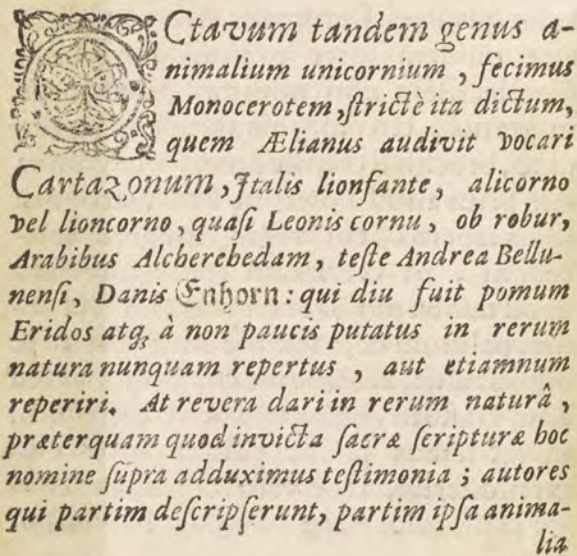 OCtavum tandem genus a-
nimalium unicornium , fecimus
Monocerotem ,ſtrictè ita dictum,
quem Ælianus audivit vocari
Cartazonum , Italis lionfante, alicorno
vel lioncorno, quaſi Leonis cornu, ob robur,
Arabibus Alcherchedam, teſte Andrea Bellu-
nenſi, Danis Enhorn: qui diu fuit pomum
Eridos atq; à non paucis putatus in rerum
natura nunquam repertus , aut etiamnum
reperiri. At revera dari in rerum naturâ ,
præterquam quod invicta ſacræ ſcripturæ hoc
nomine ſupra adduximus teſtimonia ; autores
qui partim deſcripſerunt, partim ipſa anima-
lia